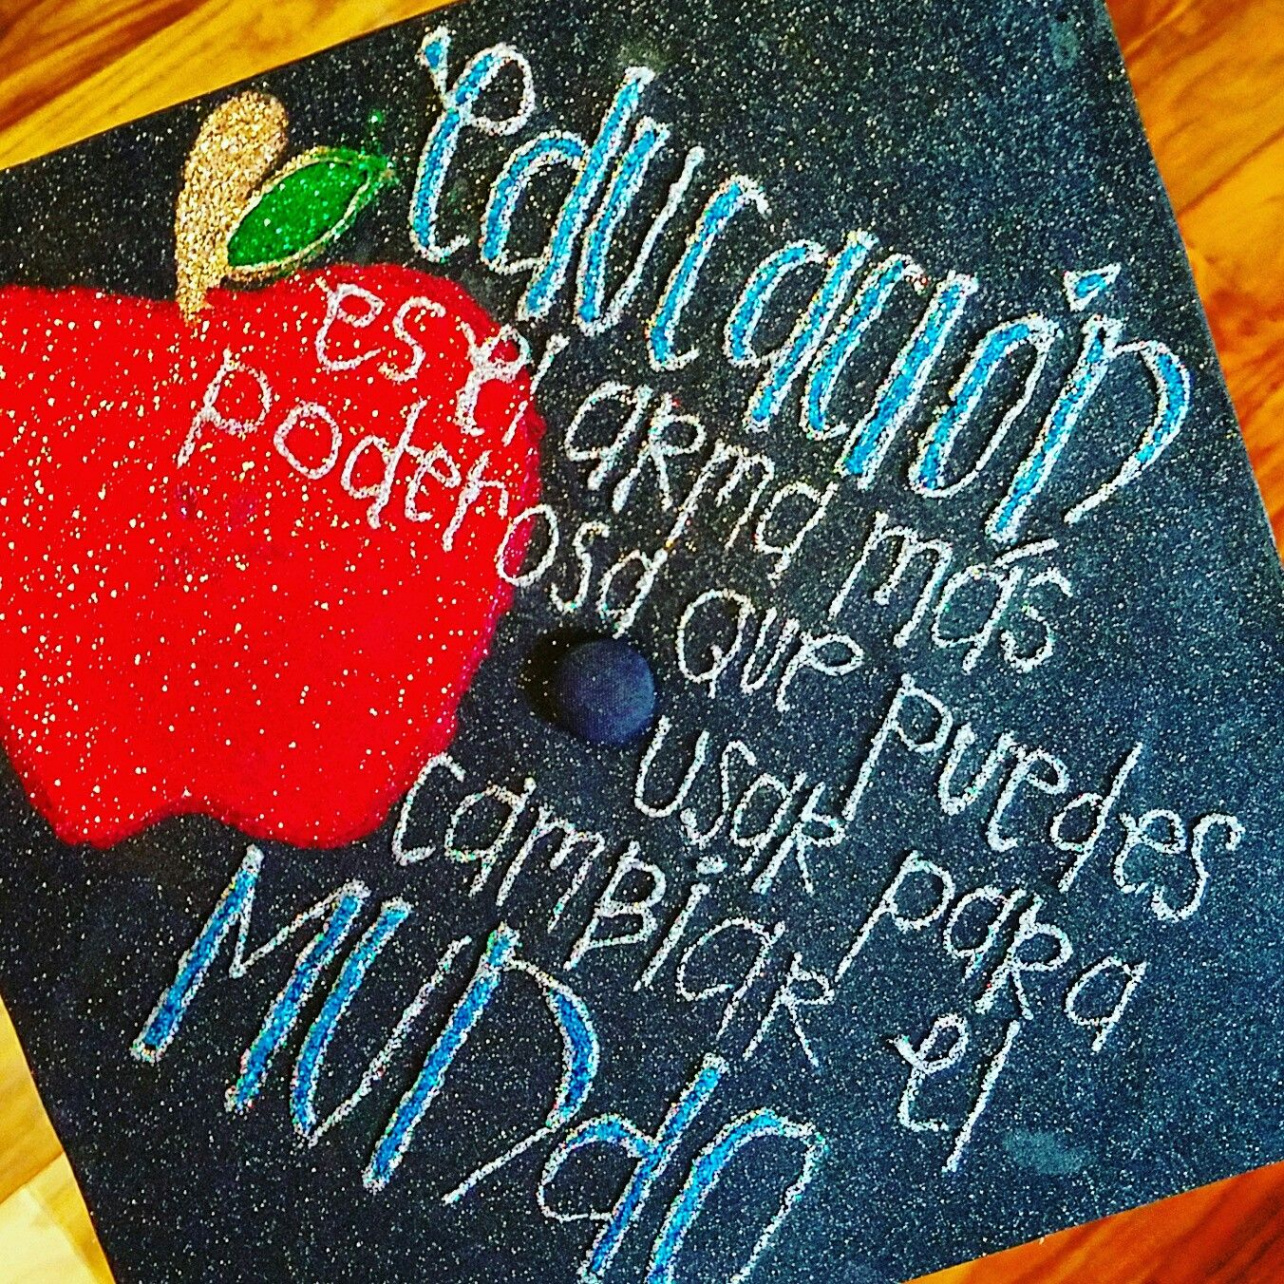 educación
es el arma más
poderosa que puedes
usar para
cambiar el
MUNdo